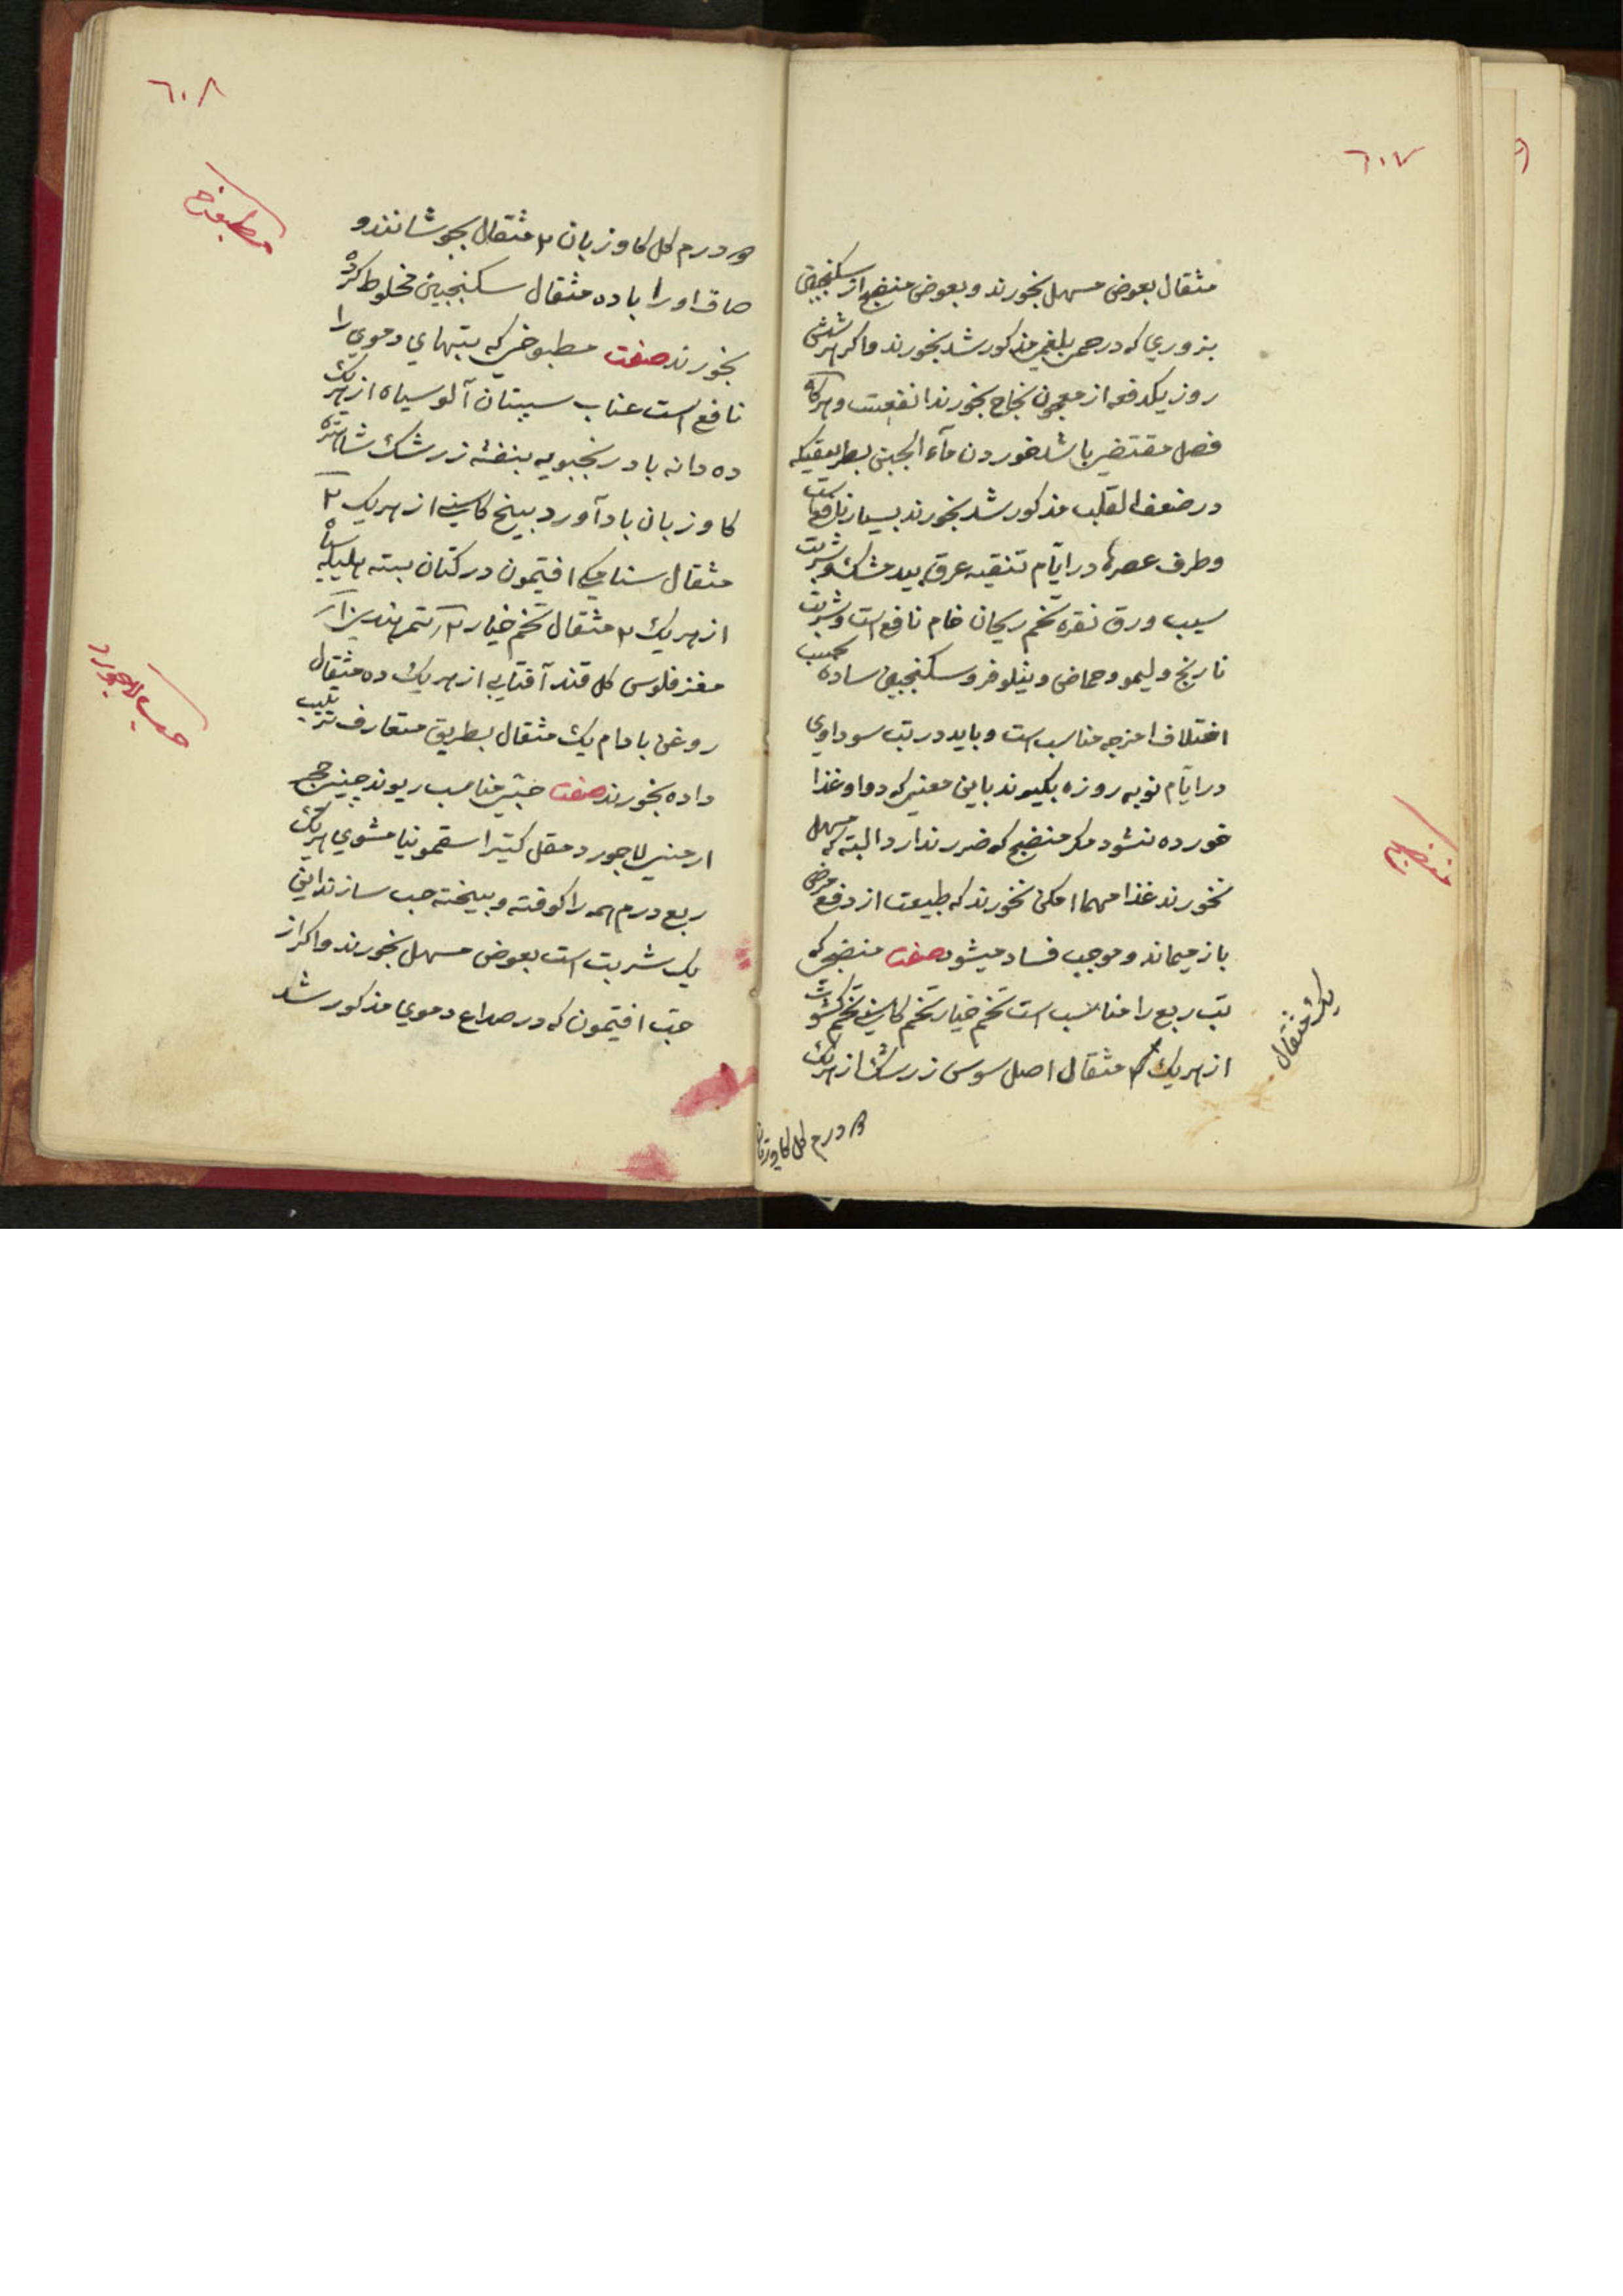 ٦٠٧
مثقال بعوض مسهل بخورند و بعوض منضج از سکنجبین
بزوری که در حمی بلغمی مذکور شد بخورند و اکر هر شش
روز یکدفعه از معجون نجاح بخورند انفعست و هرکاه
فصل مقتضی باشد خوردن ماء الجبن بطریقیکه
در ضعف القلب مذکور شد بخورند بسیار نافع است
و طرف عصرها در ایّام تنقیه عرق بید مشک و شربت
سیب ورق نقره تخم ریحان خام نافع است و شربت
نارنج و لیمو و حماض و نیلوفر و سکنجبین ساده بحسب
اختلاف امزجه مناسب است و باید در تب سوداوی
در ایّام نوبه روزه بکیرند باین معنی که دوا و غذا
خورده نشود مکر منضج که ضرر ندارد البته که مسهل
نخورند غذا مهما امکن نخورند که طبیعت از دفع مرض
باز میماند و موجب فساد میشود صفت منضجی که
تب ربع را مناسب است تخم خیار تخم کاسنی تخم کشوث
از هر یک ۲ مثقال اصل سوس زرشک از هر یک
یک مثقال
منضج
درم کل کاوزبان
٦٠٨
درم کل کاوزبان ۲ مثقال بجوشانند و
صاف او را با ده مثقال سکنجبین مخلوط کرده
بخورند صفت مطبوخی که تبهای دموی را
نافع است عناب سپستان آلو سیاه از هر یک
ده دانه بادرنجبویه بنفشه زرشک شاهتره
کاوزبان بادآورد بیخ کاسنی از هر یک ۲
مثقال سنا مکی افتیمون در کتان بسته هلیله سیاه
از هر یک ۲ مثقال تخم خیار ۲ تمر هندی
مغز فلوس کل قند آفتابی از هر یک ده مثقال
روغن بادام یک مثقال بطریق متعارف ترتیب
داده بخورند صفت حبّی مناسب ریوند چینی حجر
ارمنی لاجورد مقل کتیرا سقمونیا مشوی از هر یک
ربع درم همه را کوفته و بیخته حب سازند این
یک شربت است بعوض مسهل بخورند و اکر از
حبّ افتیمون که در صداع دموی مذکور شد
مطبوخ
حب لاجورد